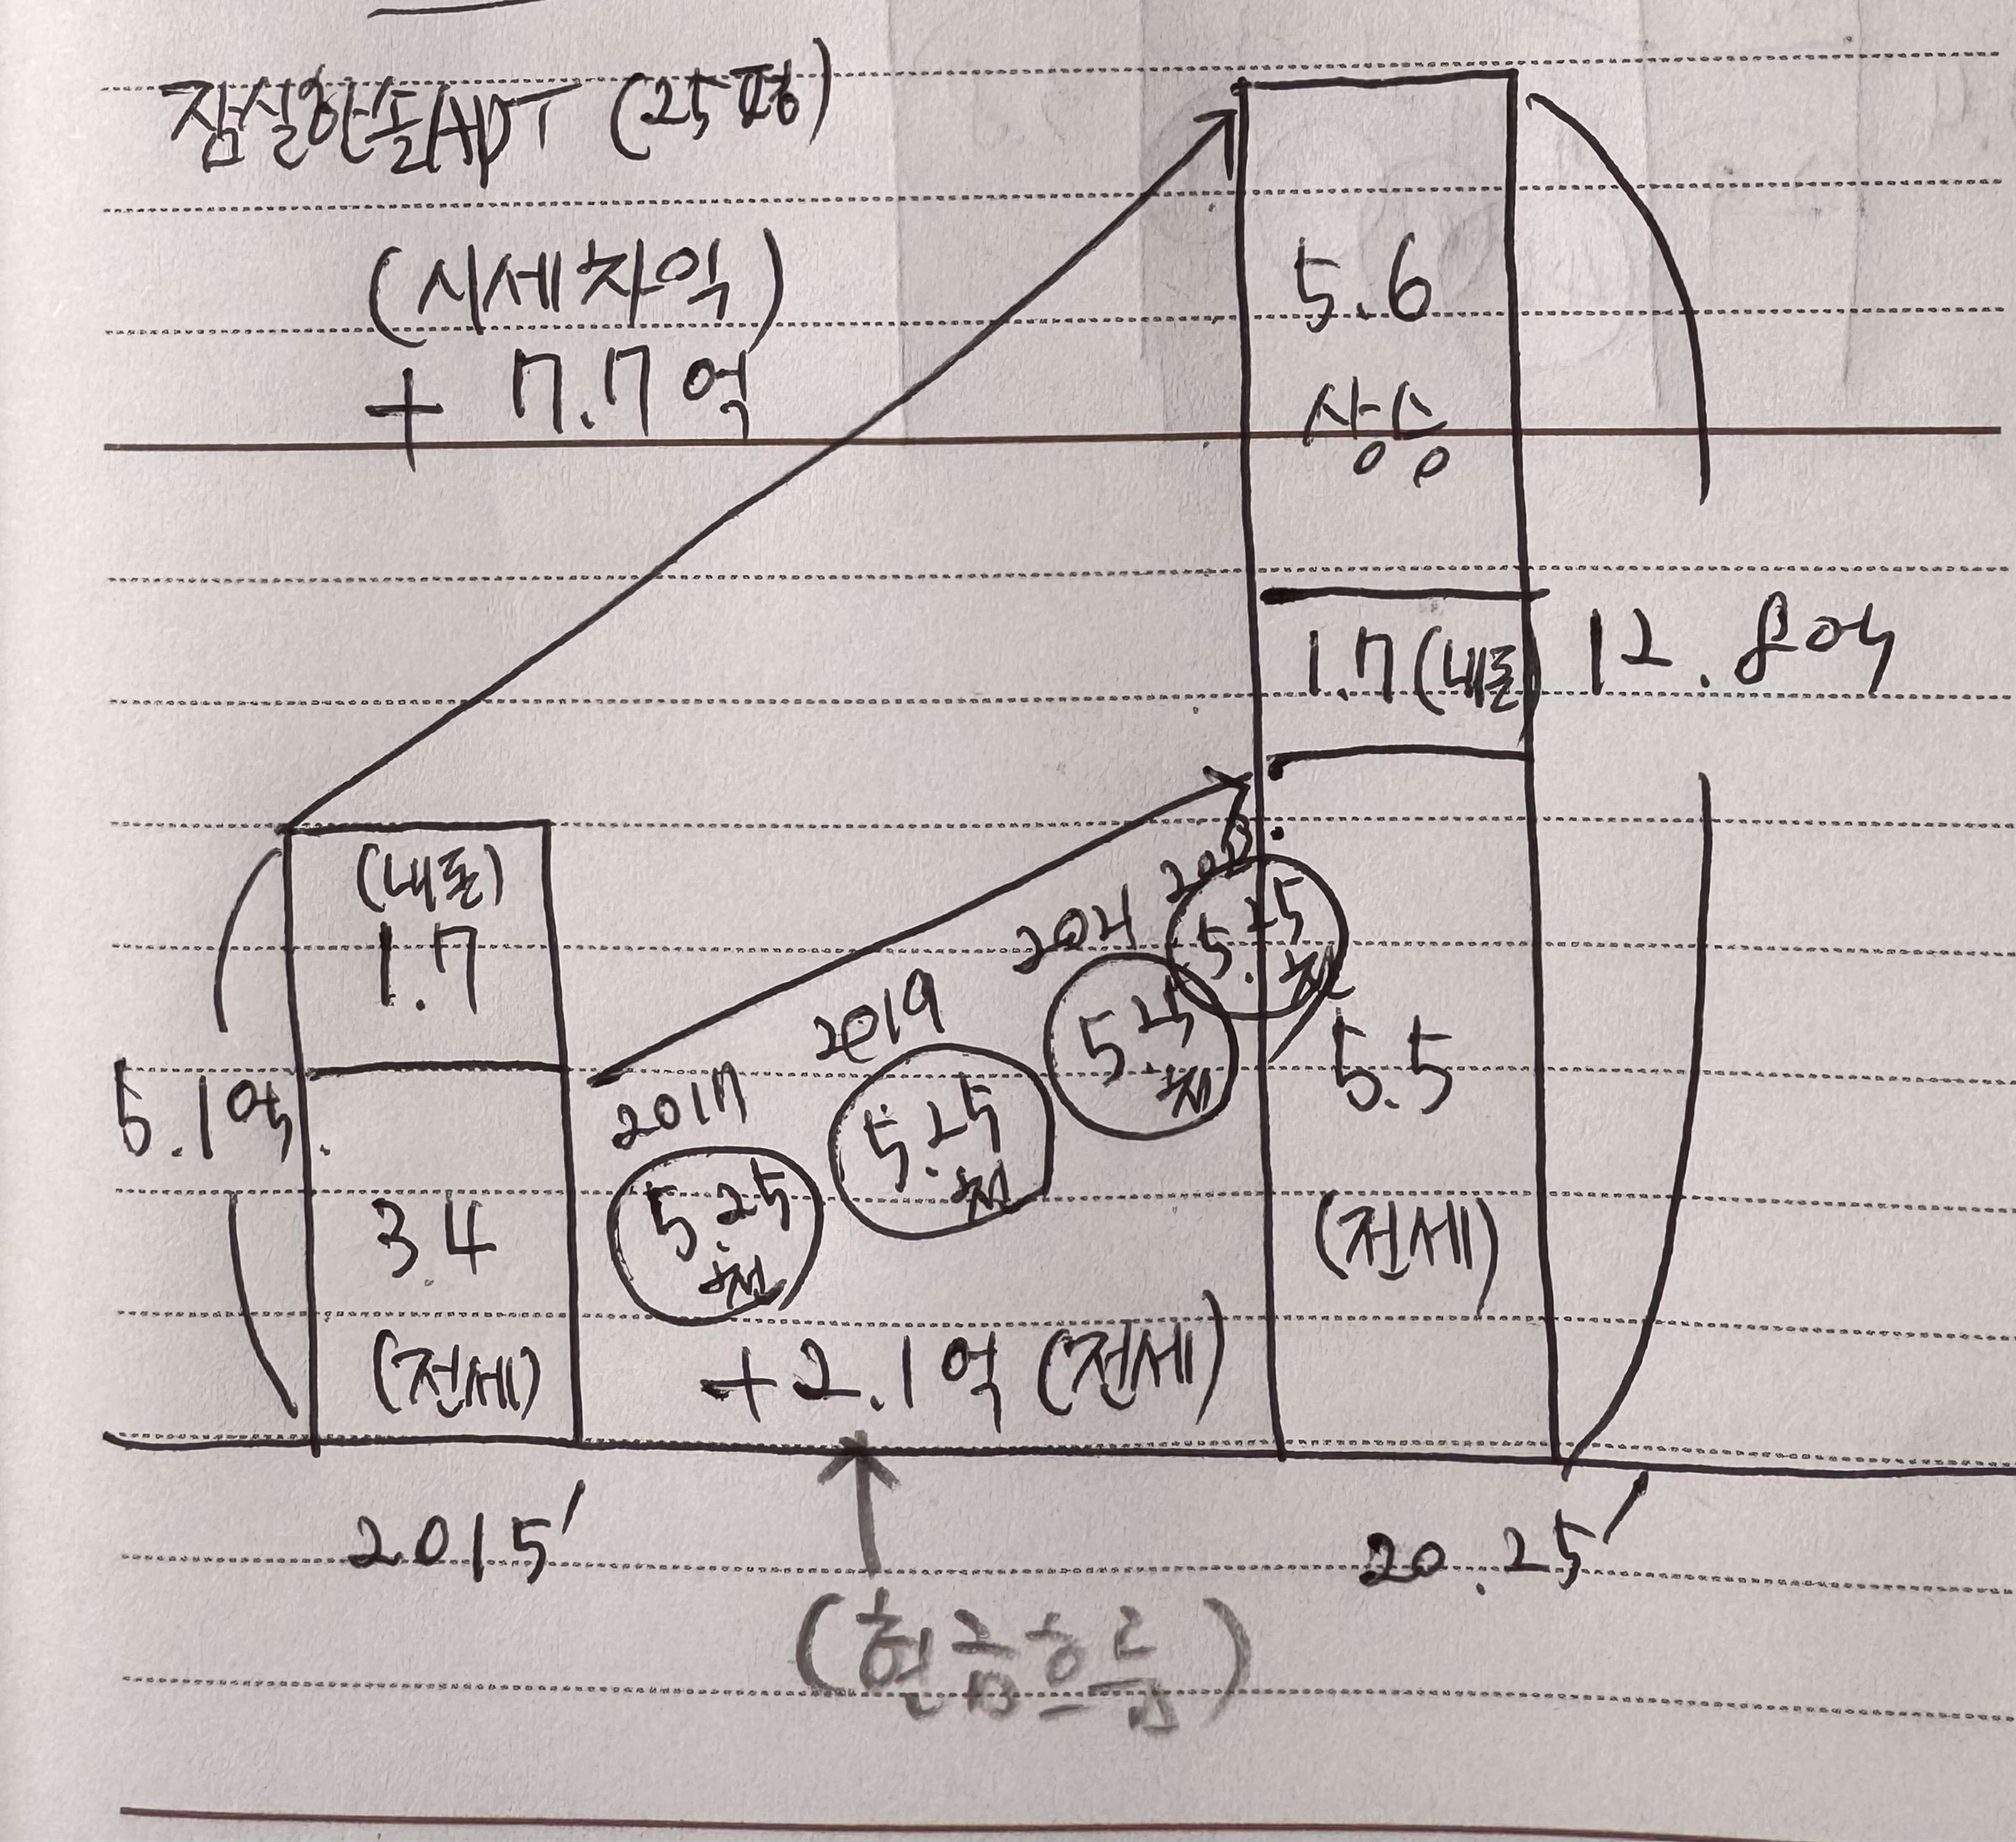 잠실한솔APT (25평)
(시세차익)
+ 7.7억
5.6
상승
1.7 (내돈)
12.8억
(내돈)
1.7
5.1억.
3.4
(전세)
2017
5.25
천
2019
5.25
천
2021
5.25
천
5.25
천
5.5
(전세)
+2.1억 (전세)
2015'
20.25'
(현금흐름)